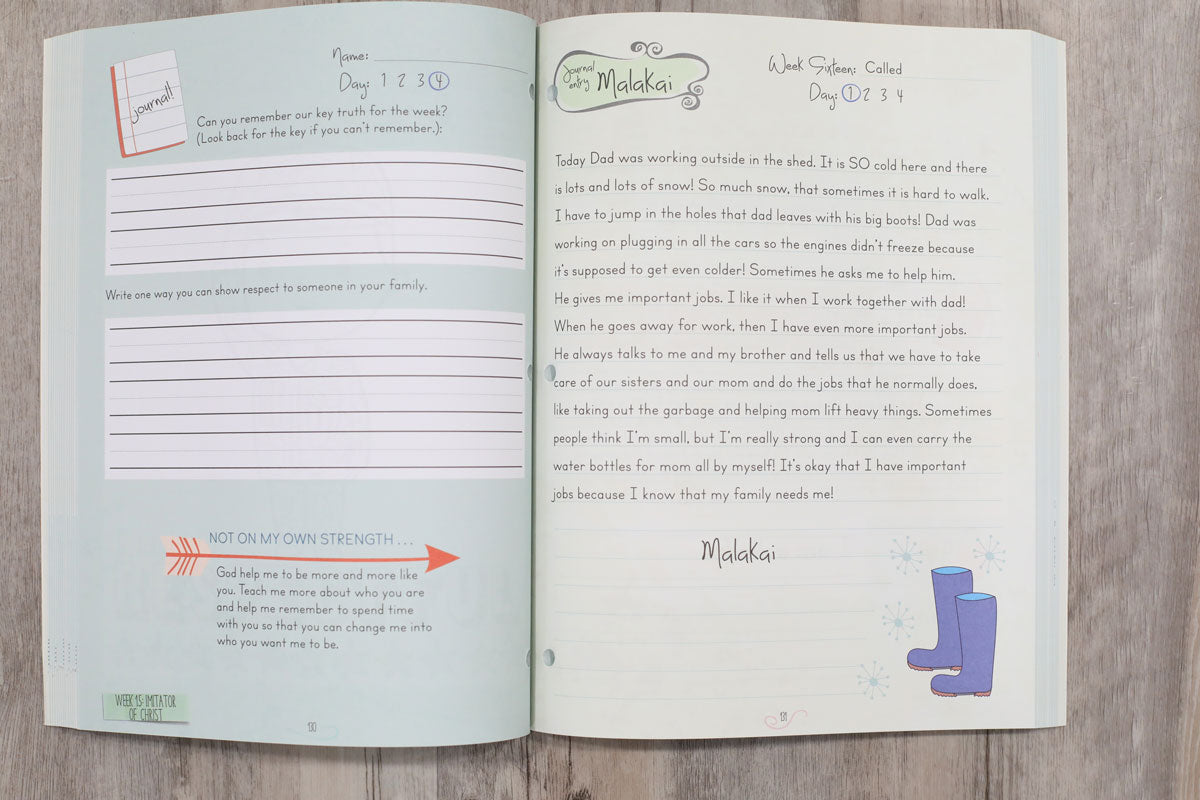 journal!
Name:
Day: 1 2 3 4
Can you remember our key truth for the week?
(Look back for the key if you can't remember.):
Write one way you can show respect to someone in your family.
NOT ON MY OWN STRENGTH . . .
God help me to be more and more like
you. Teach me more about who you are
and help me remember to spend time
with you so that you can change me into
who you want me to be.
WEEK 15: IMITATOR
OF CHRIST
130
Journal
entry
Malakai
Week Sixteen: Called
Day: 1 2 3 4
Today Dad was working outside in the shed. It is SO cold here and there
is lots and lots of snow! So much snow, that sometimes it is hard to walk.
I have to jump in the holes that dad leaves with his big boots! Dad was
working on plugging in all the cars so the engines didn't freeze because
it's supposed to get even colder! Sometimes he asks me to help him.
He gives me important jobs. I like it when I work together with dad!
When he goes away for work, then I have even more important jobs.
He always talks to me and my brother and tells us that we have to take
care of our sisters and our mom and do the jobs that he normally does,
like taking out the garbage and helping mom lift heavy things. Sometimes
people think I'm small, but I'm really strong and I can even carry the
water bottles for mom all by myself! It's okay that I have important
jobs because I know that my family needs me!
Malakai
131